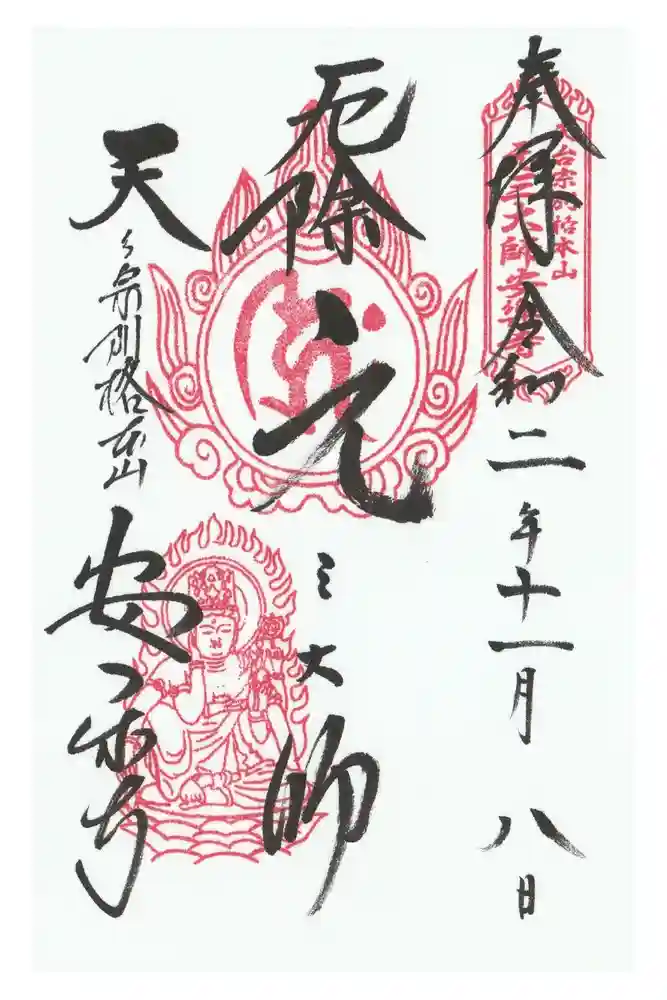 奉拝 令和二年十一月八日
天台宗別格本山
元三大師安楽寺
厄除元三大師
天台宗別格本山 安楽寺